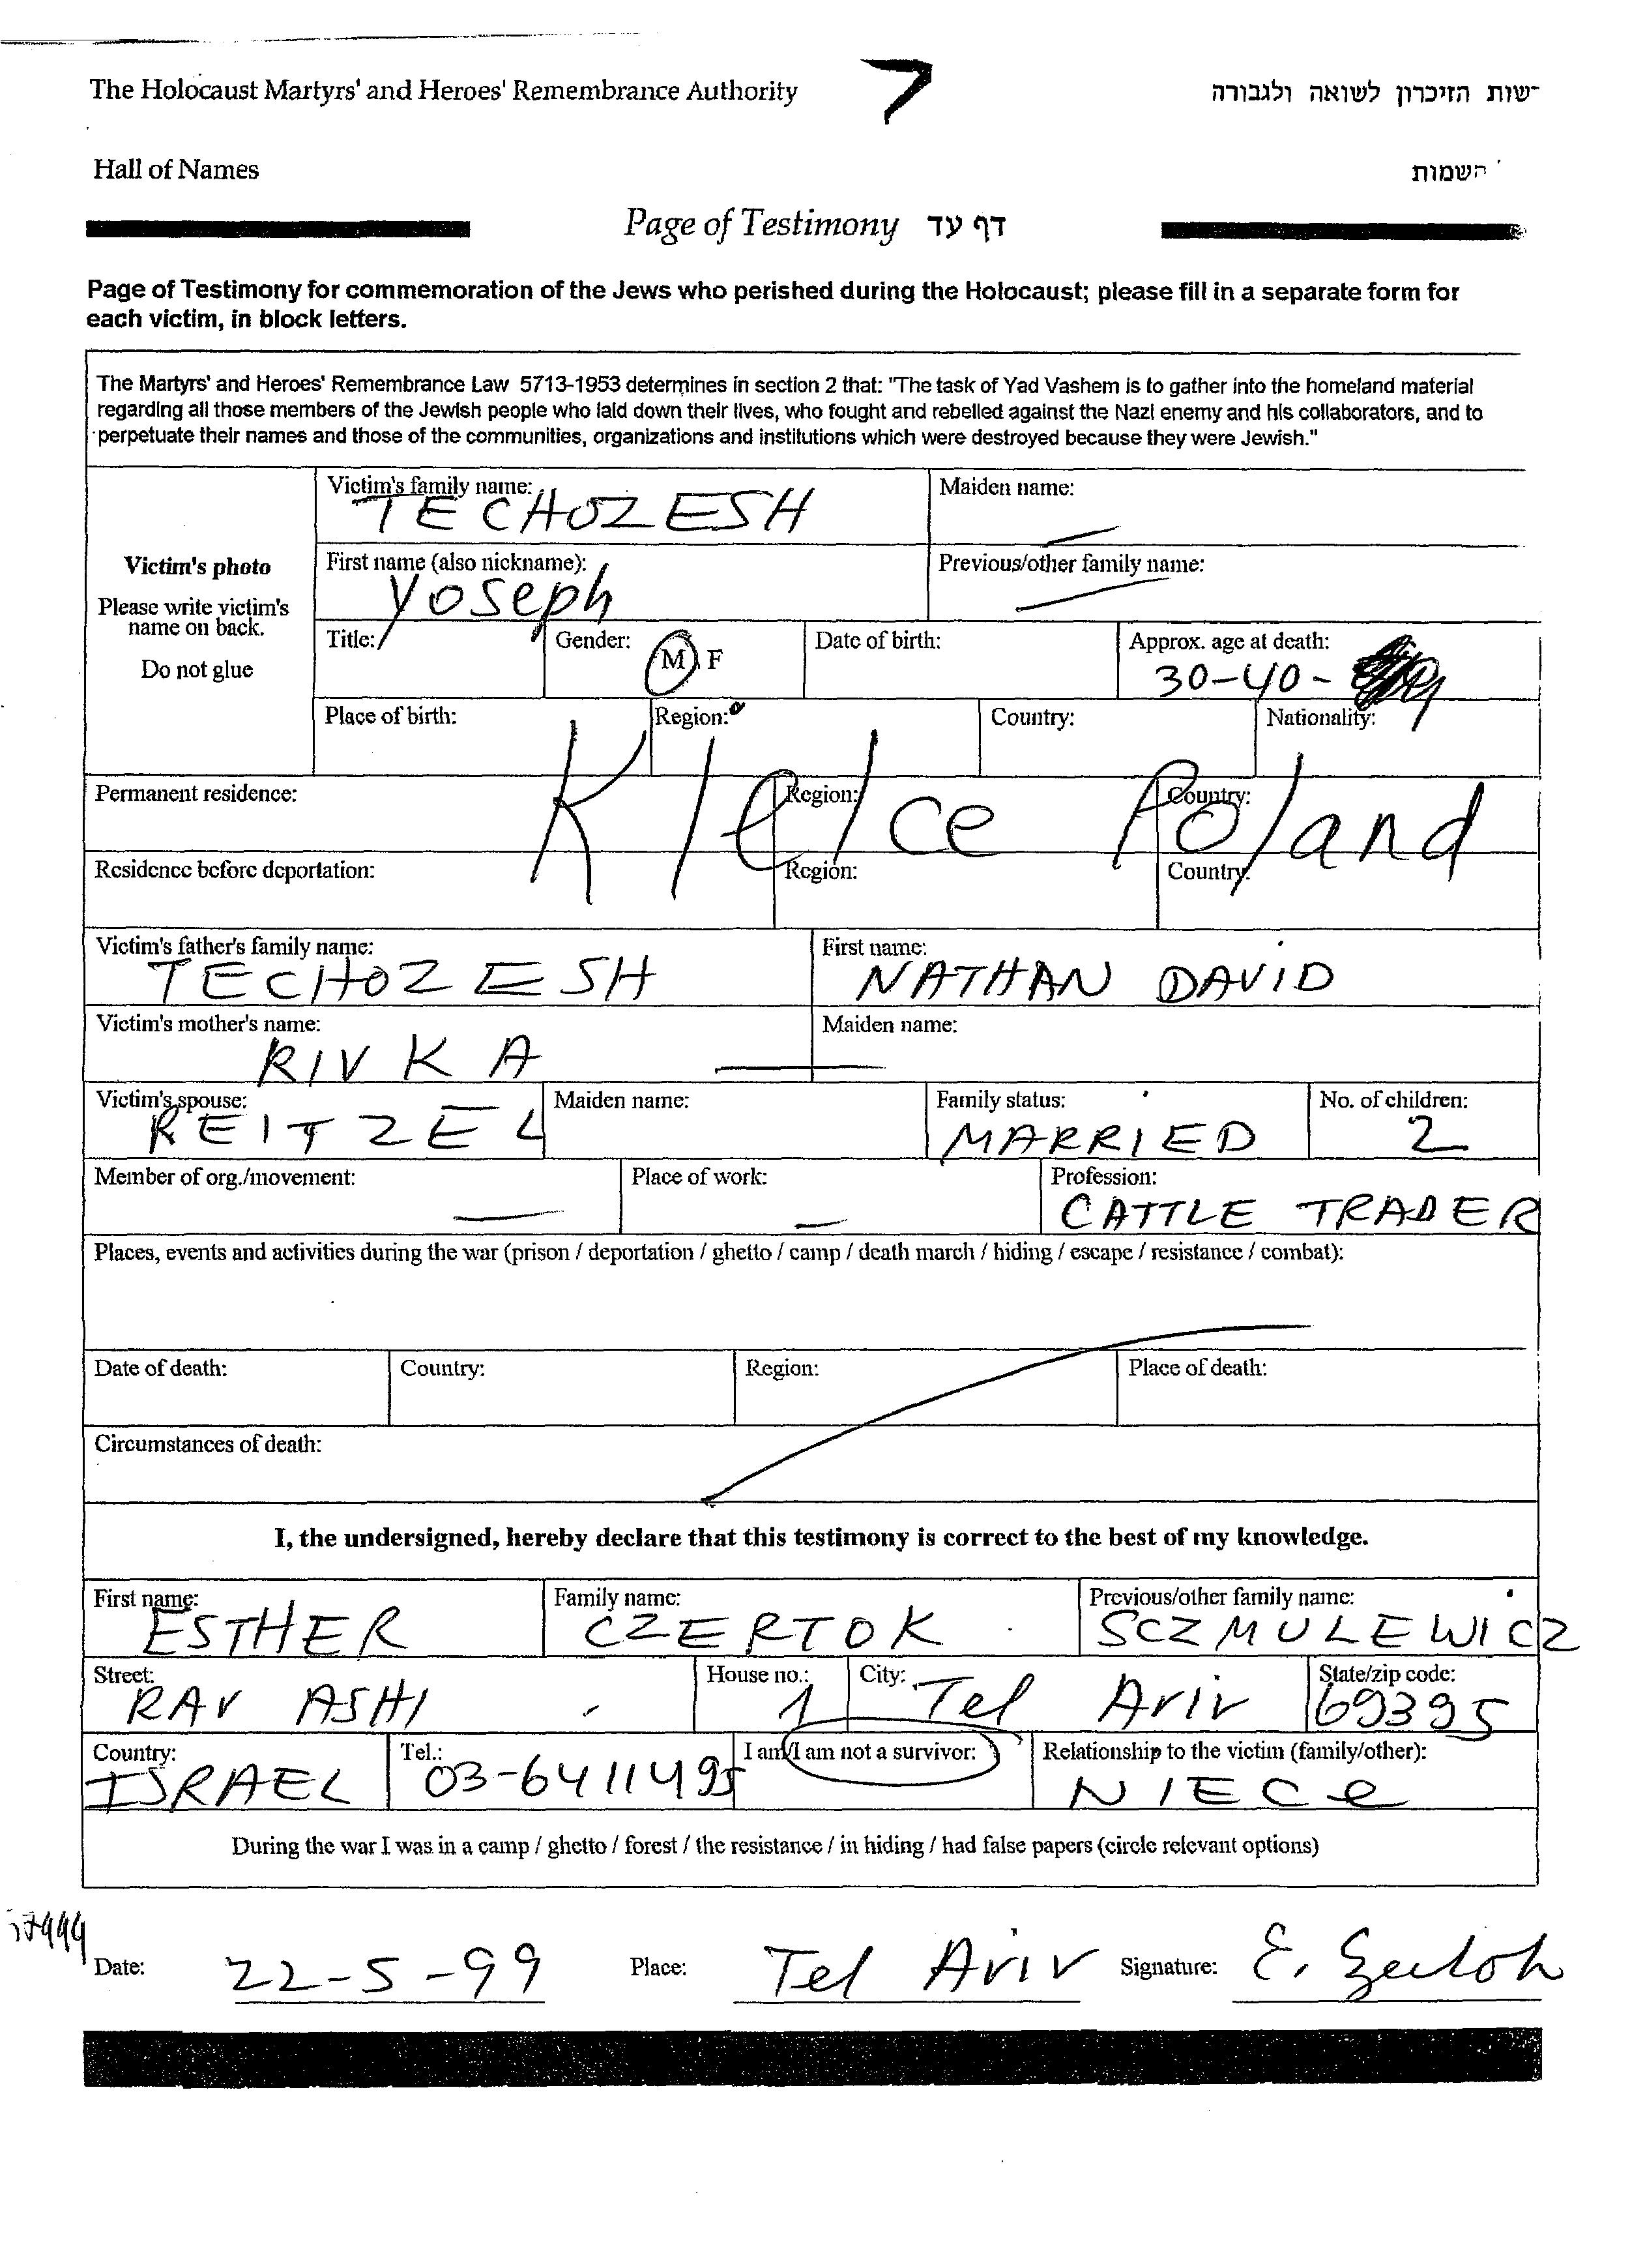 The Holocaust Martyrs' and Heroes' Remembrance Authority
שות הזיכרון לשואה ולגבורה
Hall of Names
השמות
Page of Testimony דף עד
Page of Testimony for commemoration of the Jews who perished during the Holocaust; please fill in a separate form for
each victim, in block letters.
The Martyrs' and Heroes' Remembrance Law 5713-1953 determines in section 2 that: "The task of Yad Vashem is to gather into the homeland material
regarding all those members of the Jewish people who laid down their lives, who fought and rebelled against the Nazi enemy and his collaborators, and to
perpetuate their names and those of the communities, organizations and institutions which were destroyed because they were Jewish."
Victim's photo
Please write victim's
name on back.
Do not glue
Victim's family name: TECHOZESH
Maiden name: —
First name (also nickname): Yoseph
Previous/other family name: —
Title: Gender: M F Date of birth: Approx. age at death: 30-40-
Place of birth: Region: Country: Nationality:
Permanent residence: Region: Country:
Kielce Poland
Residence before deportation: Region: Country:
Victim's father's family name: TECHOZESH First name: NATHAN DAVID
Victim's mother's name: RIVKA Maiden name: —
Victim's spouse: REITZEL Maiden name: Family status: MARRIED No. of children: 2
Member of org./movement: — Place of work: — Profession: CATTLE TRADER
Places, events and activities during the war (prison / deportation / ghetto / camp / death march / hiding / escape / resistance / combat):
Date of death: Country: Region: Place of death:
Circumstances of death:
I, the undersigned, hereby declare that this testimony is correct to the best of my knowledge.
First name: ESTHER Family name: CZERTOK Previous/other family name: SCZMULEWICZ
Street: RAV ASHI House no.: 1 City: Tel Aviv State/zip code: 69395
Country: ISRAEL Tel.: 03-6411495 I am/I am not a survivor: Relationship to the victim (family/other): NIECe
During the war I was in a camp / ghetto / forest / the resistance / in hiding / had false papers (circle relevant options)
Date: 22-5-99 Place: Tel Aviv Signature: